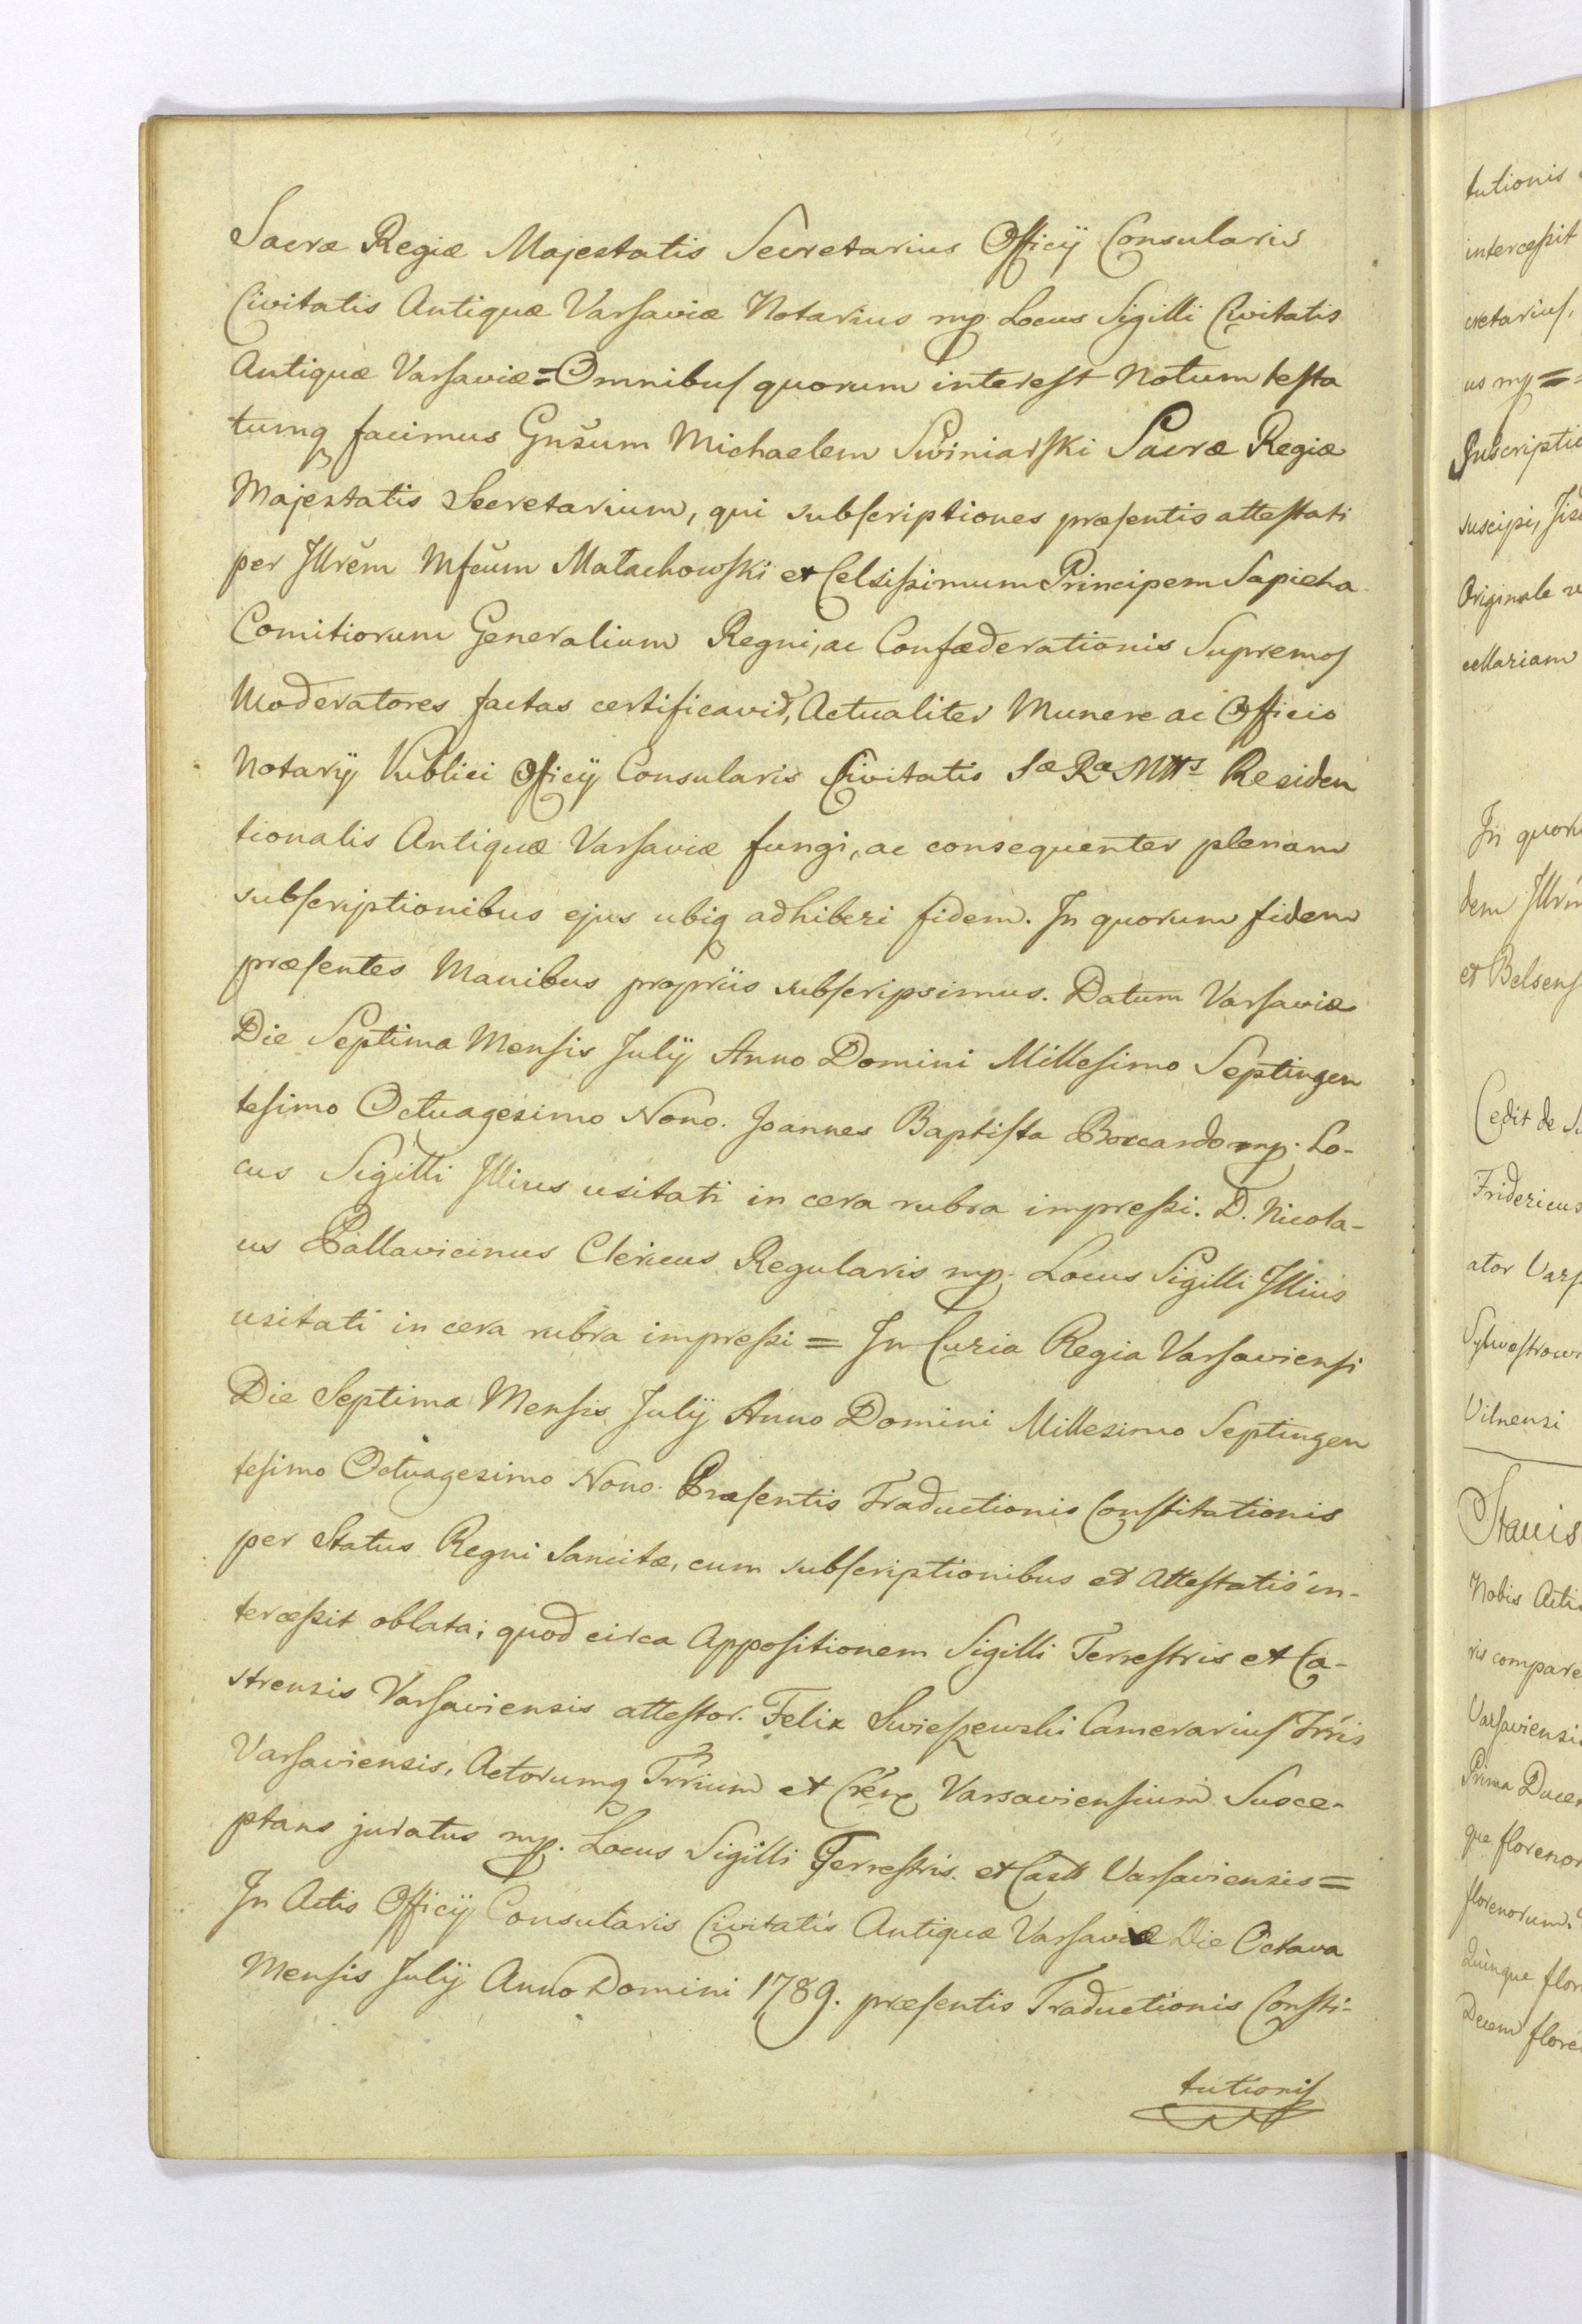 Sacræ Regiæ Majestatis Secretarius Officÿ Consularis
Civitatis Antiquæ Varsaviæ Notarius mp. Locus Sigilli Civitatis
Antiquæ Varsaviæ = Omnibus quorum interest Notum testa
tumq facimus Gnšum Michaelem Swiniarski Sacræ Regiæ
Majestatis Secretarium, qui subscriptiones præsentis attestati
per Jllrĕm Mfcŭm Małachowski et Celsissimum Principem Sapieha
Comitiorum Generalium Regni, ac Confæderationis Supremos
Moderatores factas certificavit, Actualiter Munere ac Officio
Notarÿ Publici Officÿ Consularis Civitatis Sæ Ræ Mttis Residen
tionalis Antiquæ Varsaviæ fungi, ac consequenter plenam
subscriptionibus ejus ubiq adhiberi fidem. Jn quorum fidem
præsentes Manibus propriis subscripsimus. Datum Varsaviæ
Die Septima Mensis Julÿ Anno Domini Millesimo Septingen
tesimo Octuagesimo Nono. Joannes Baptista Boccardo mp. Lo-
cus Sigilli Jllius usitati in cera rubra impressi. D. Nicola-
us Pallavicinus Clericus Regularis mp. Locus Sigilli Jllius
usitati in cera rubra impressi = Jn Curia Regia Varsaviensi
Die Septima Mensis Julÿ Anno Domini Millesimo Septingen
tesimo Octuagesimo Nono. Præsentis Traductionis Constitutionis
per Status Regni Sancitæ, cum subscriptionibus et Attestatis in-
tercessit oblata; quod circa Appositionem Sigilli Terrestris et Ca-
strensis Varsaviensis attestor. Felix Swieszewski Camerarius Trris
Varsaviensis, Actorumq Trrium et Crén Varsaviensium Susce-
ptans juratus mp. Locus Sigilli Terrestris. et Castr Varsaviensis =
Jn Actis Officÿ Consularis Civitatis Antiquæ Varsaviæ Die Octava
Mensis Julÿ Anno Domini 1789. præsentis Traductionis Consti-
tutionis
tutionis
intercessit
cretarius,
us mp =
suscepi,
Originale
cellariam
Jn quoru
dem Jllrm
et Belsens
Cedit de
Fridericus
ator Vars
Vilnensi
Stanis
Nobis Actis
ris compare
Varsaviensi
Prima Ducen
que florenor
florenorum.
Quinque flor
Decem flore